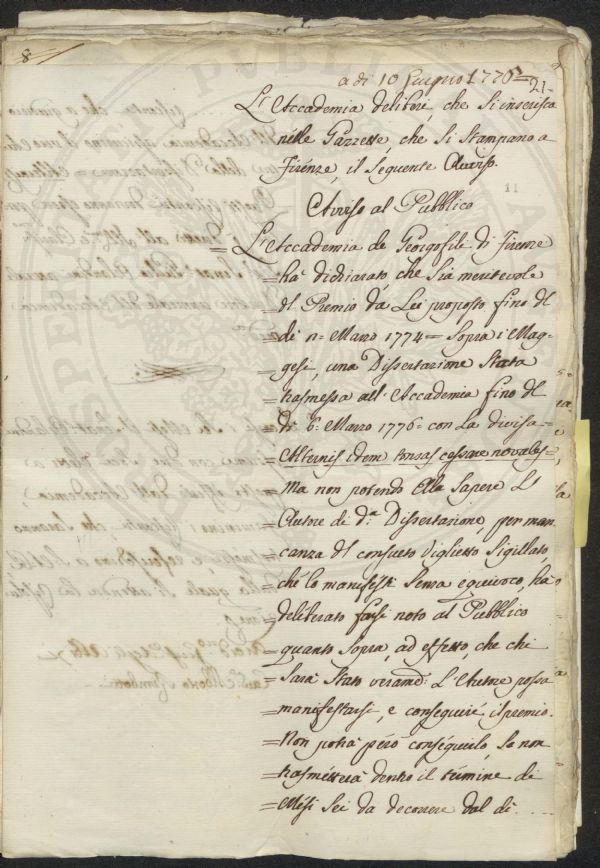 8
a dì 10 Giugno 1776=
21.
L'Accademia deliberò, che si inserisca
nelle Gazzette, che si Stampano a
Firenze, il Seguente Avviso.
Avviso al Pubblico
=L'Accademia de Georgofili di Firenze
=ha dichiarato, che sia meritevole
=del Premio da Lei proposto fino del
=dì Marzo 1774= Sopra i Mag-
=gesi, una Dissertazione Stata
=trasmessa all'Accademia fino del
=dì 6. Marzo 1776= con La divisa=
=Alternis idem tonsas cessare novales=
=Ma non potendo Ella Sapere L'
=Autore di d.a Dissertazione, per man
=canza del consueto Viglietto Sigillato,
=che lo manifesti Senza equivoco, ha
=deliberato farsi noto al Pubblico
=quanto Sopra, ad effetto, che chi
=Sarà Stato veram.e L'Autore possa
=manifestarsi, e conseguire il premio.
=Non potrà però conseguirlo, Se non
=trasmetterà dentro il termine di
=Mesi Sei da decorrere dal dì